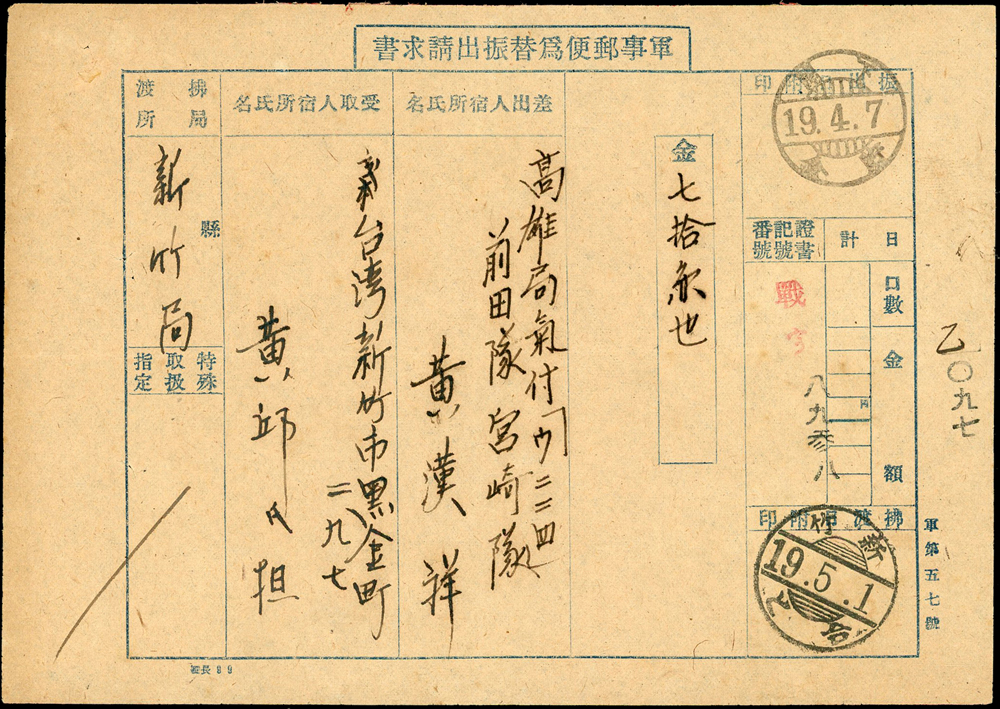 軍事郵便爲替振出請求書
振出日附印
19.4.7
日計
口數
金額
證書
記號
番號
戰
八九参八
拂渡日附印
新竹
19.5.1
台
金
七拾
也
差出人宿所氏名
高雄局氣付
ウ二三四
前田隊宮崎隊
黄漢祥
受取人宿所氏名
台湾新竹市黒金町
二九七
黄邱氏担
拂渡局所
新竹局
縣
特殊
取扱
指定
乙〇九七
軍第五七號